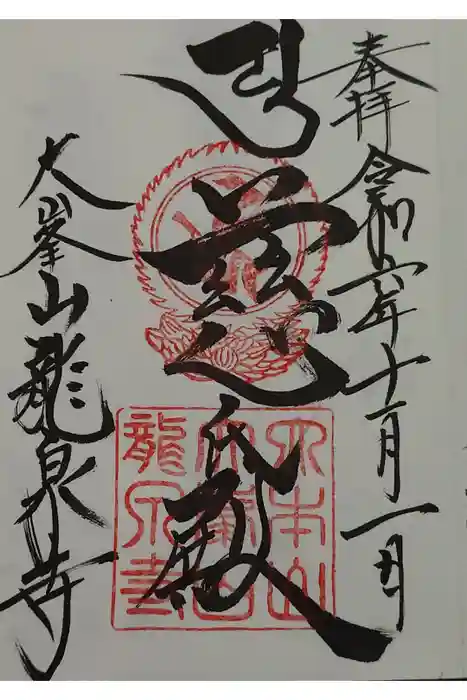 奉拝 令和六年十一月一日
慈氏殿
大峯山龍泉寺
大本山
龍泉寺